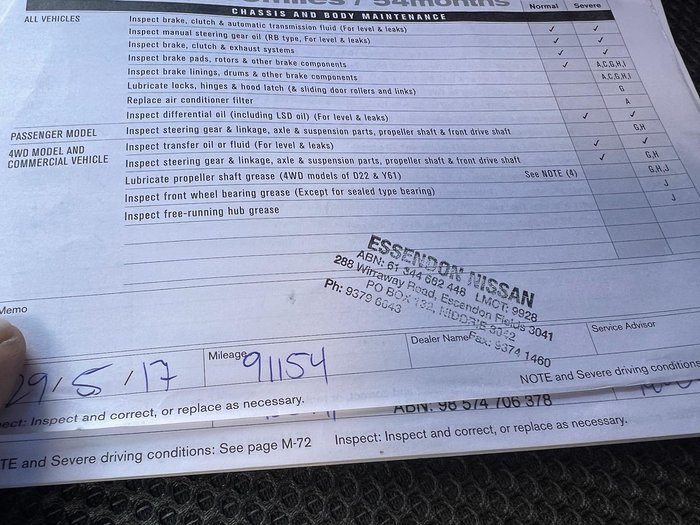 miles / 54months
CHASSIS AND BODY MAINTENANCE
Normal Severe
ALL VEHICLES
Inspect brake, clutch & automatic transmission fluid (For level & leaks) ✓ ✓
Inspect manual steering gear oil (RB type, For level & leaks) ✓ ✓
Inspect brake, clutch & exhaust systems ✓ ✓
Inspect brake pads, rotors & other brake components ✓ A,C,G,H,I
Inspect brake linings, drums & other brake components A,C,G,H,I
Lubricate locks, hinges & hood latch (& sliding door rollers and links) G
Replace air conditioner filter A
Inspect differential oil (including LSD oil) (For level & leaks) ✓ ✓
PASSENGER MODEL
Inspect steering gear & linkage, axle & suspension parts, propeller shaft & front drive shaft G,H
4WD MODEL AND
COMMERCIAL VEHICLE
Inspect transfer oil or fluid (For level & leaks) ✓ ✓
Inspect steering gear & linkage, axle & suspension parts, propeller shaft & front drive shaft ✓ G,H
Lubricate propeller shaft grease (4WD models of D22 & Y61) See NOTE (4) G,H,J
Inspect front wheel bearing grease (Except for sealed type bearing) J
Inspect free-running hub grease
ESSENDON NISSAN
ABN: 61 344 662 448 LMCT: 9928
288 Wirraway Road, Essendon Fields 3041
PO BOX 132, NIDDRIE 3042
Ph: 9379 6643 Fax: 9374 1460
Memo
29/5/17
Mileage 91154
Dealer Name
Service Advisor
NOTE and Severe driving conditions
ect: Inspect and correct, or replace as necessary.
ABN: 98 574 706 378
TE and Severe driving conditions: See page M-72 Inspect: Inspect and correct, or replace as necessary.